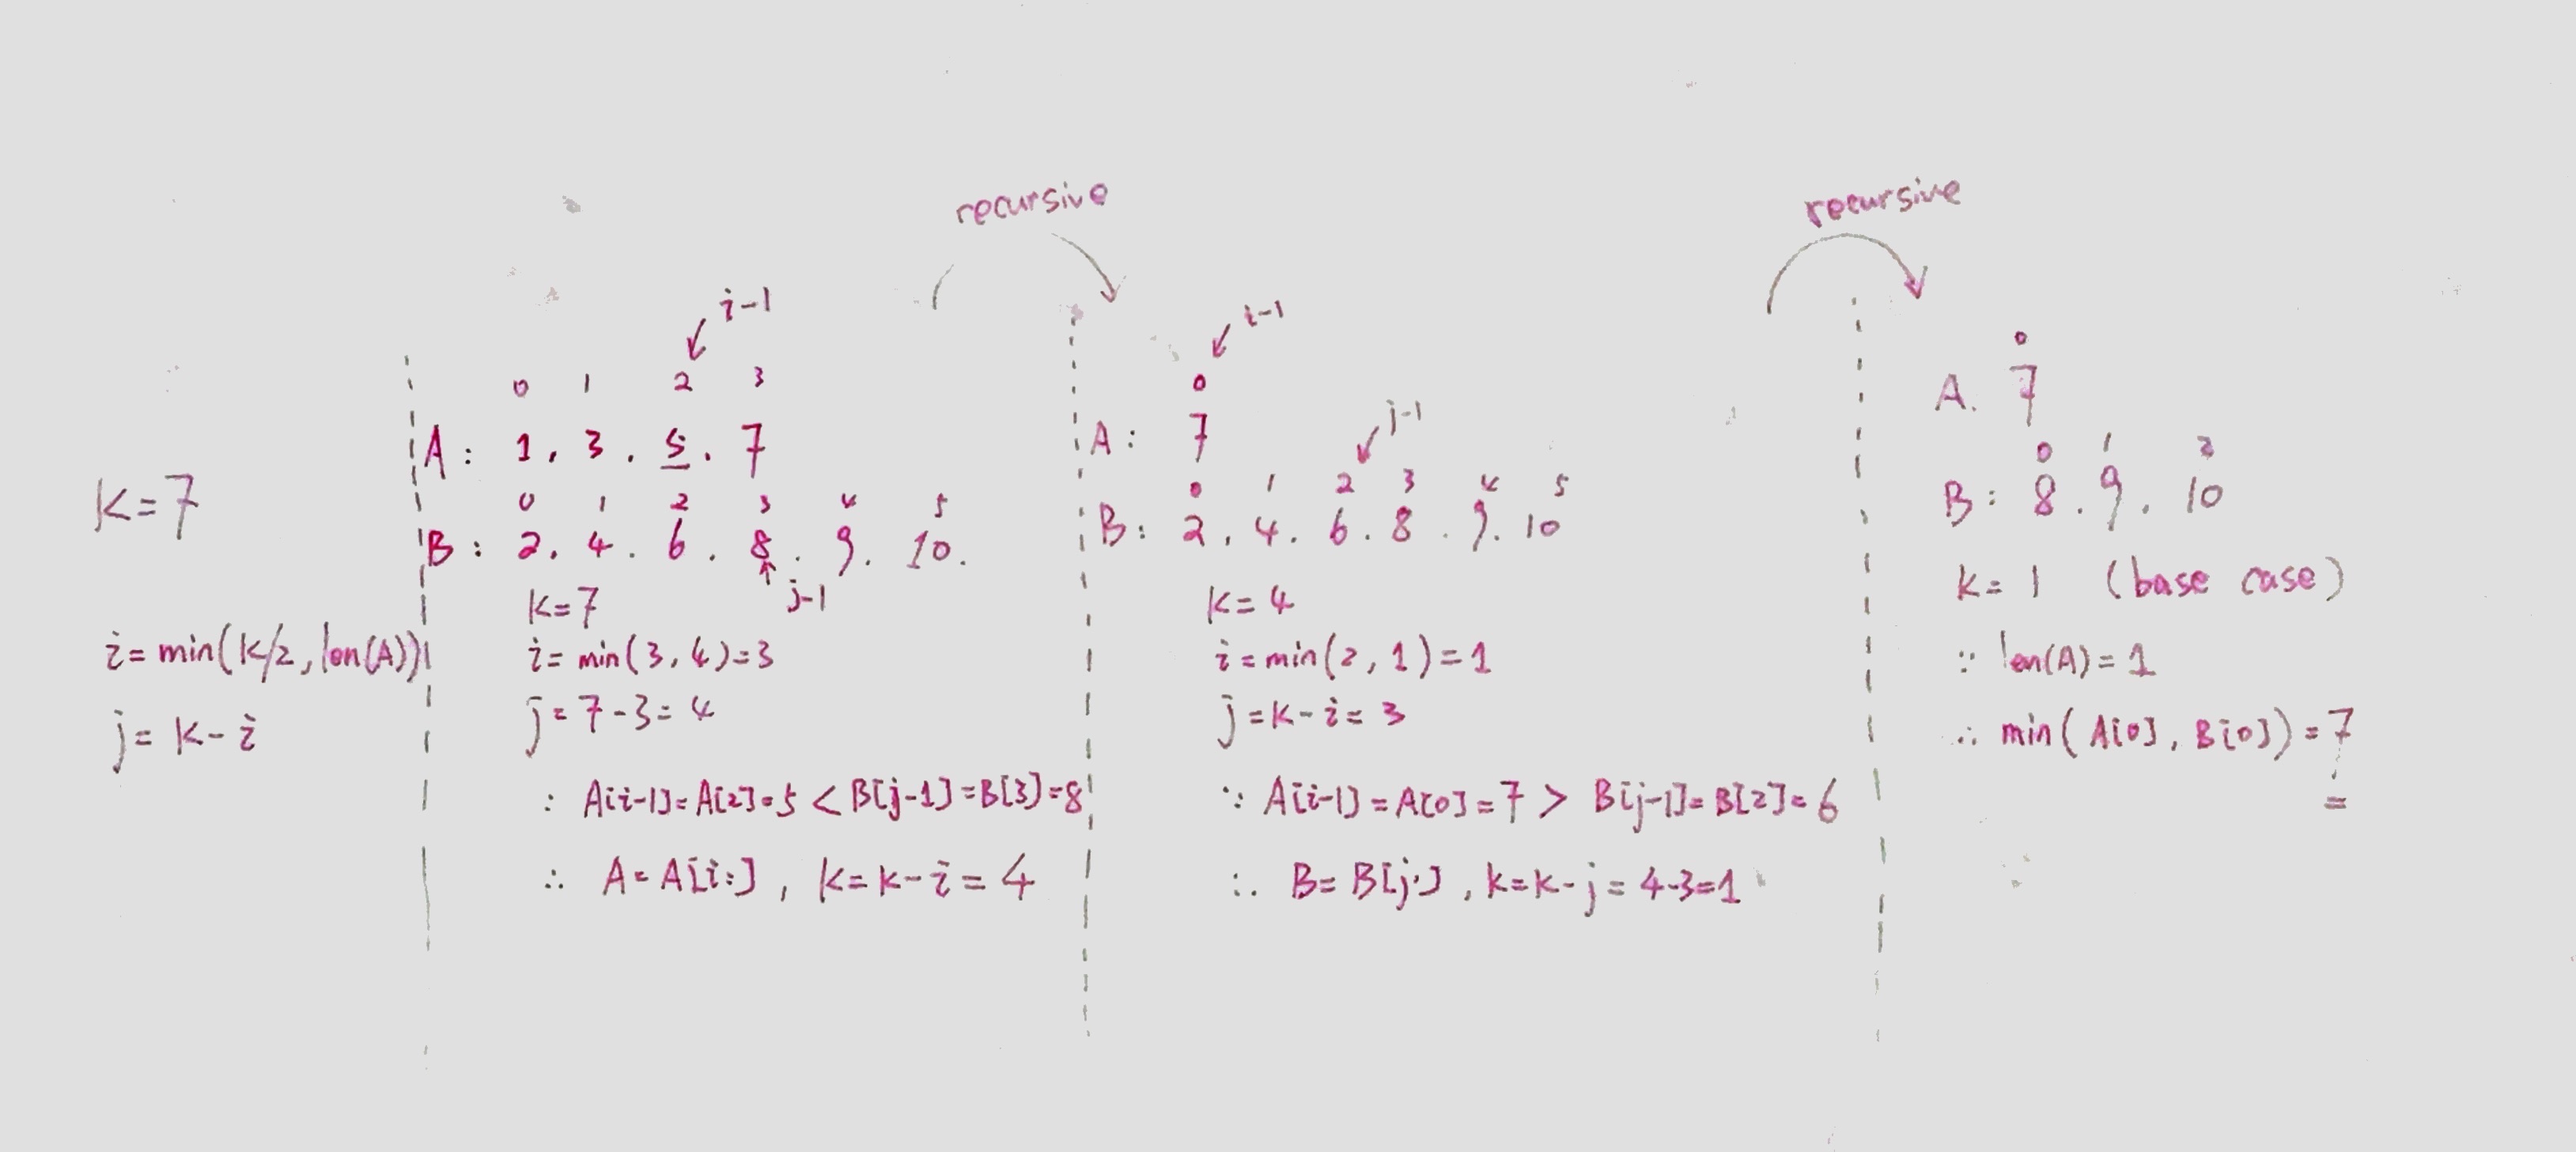 K=7
i= min(K/2, len(A))
j= K-i
recursive
i-1
0 1 2 3
A: 1, 3. 5. 7
0 1 2 3 4 5
B: 2, 4. 6. 8. 9. 10.
j-1
K=7
i= min(3,4)=3
j= 7-3= 4
: A[i-1]=A[2]=5 < B[j-1]=B[3]=8
∴ A=A[i:], K=K-i=4
recursive
i-1
0
A: 7
j-1
0 1 2 3 4 5
B: 2, 4. 6. 8. 9. 10
K=4
i=min(2,1)=1
j=K-i=3
∵ A[i-1]=A[0]=7 > B[j-1]=B[2]=6
∴ B=B[j:], K=K-j=4-3=1
0
A. 7
0 1 2
B: 8. 9. 10
K=1 (base case)
∵ len(A)=1
∴ min(A[0], B[0])=7